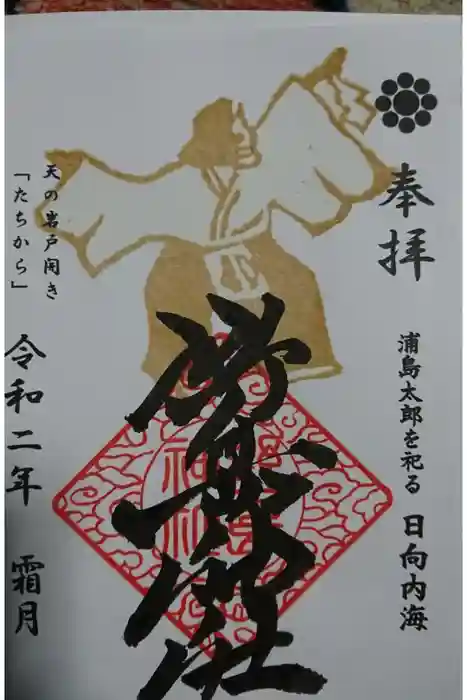 奉拝
浦島太郎を祀る 日向内海
神社
天の岩戸開き
「たちから」
令和二年 霜月